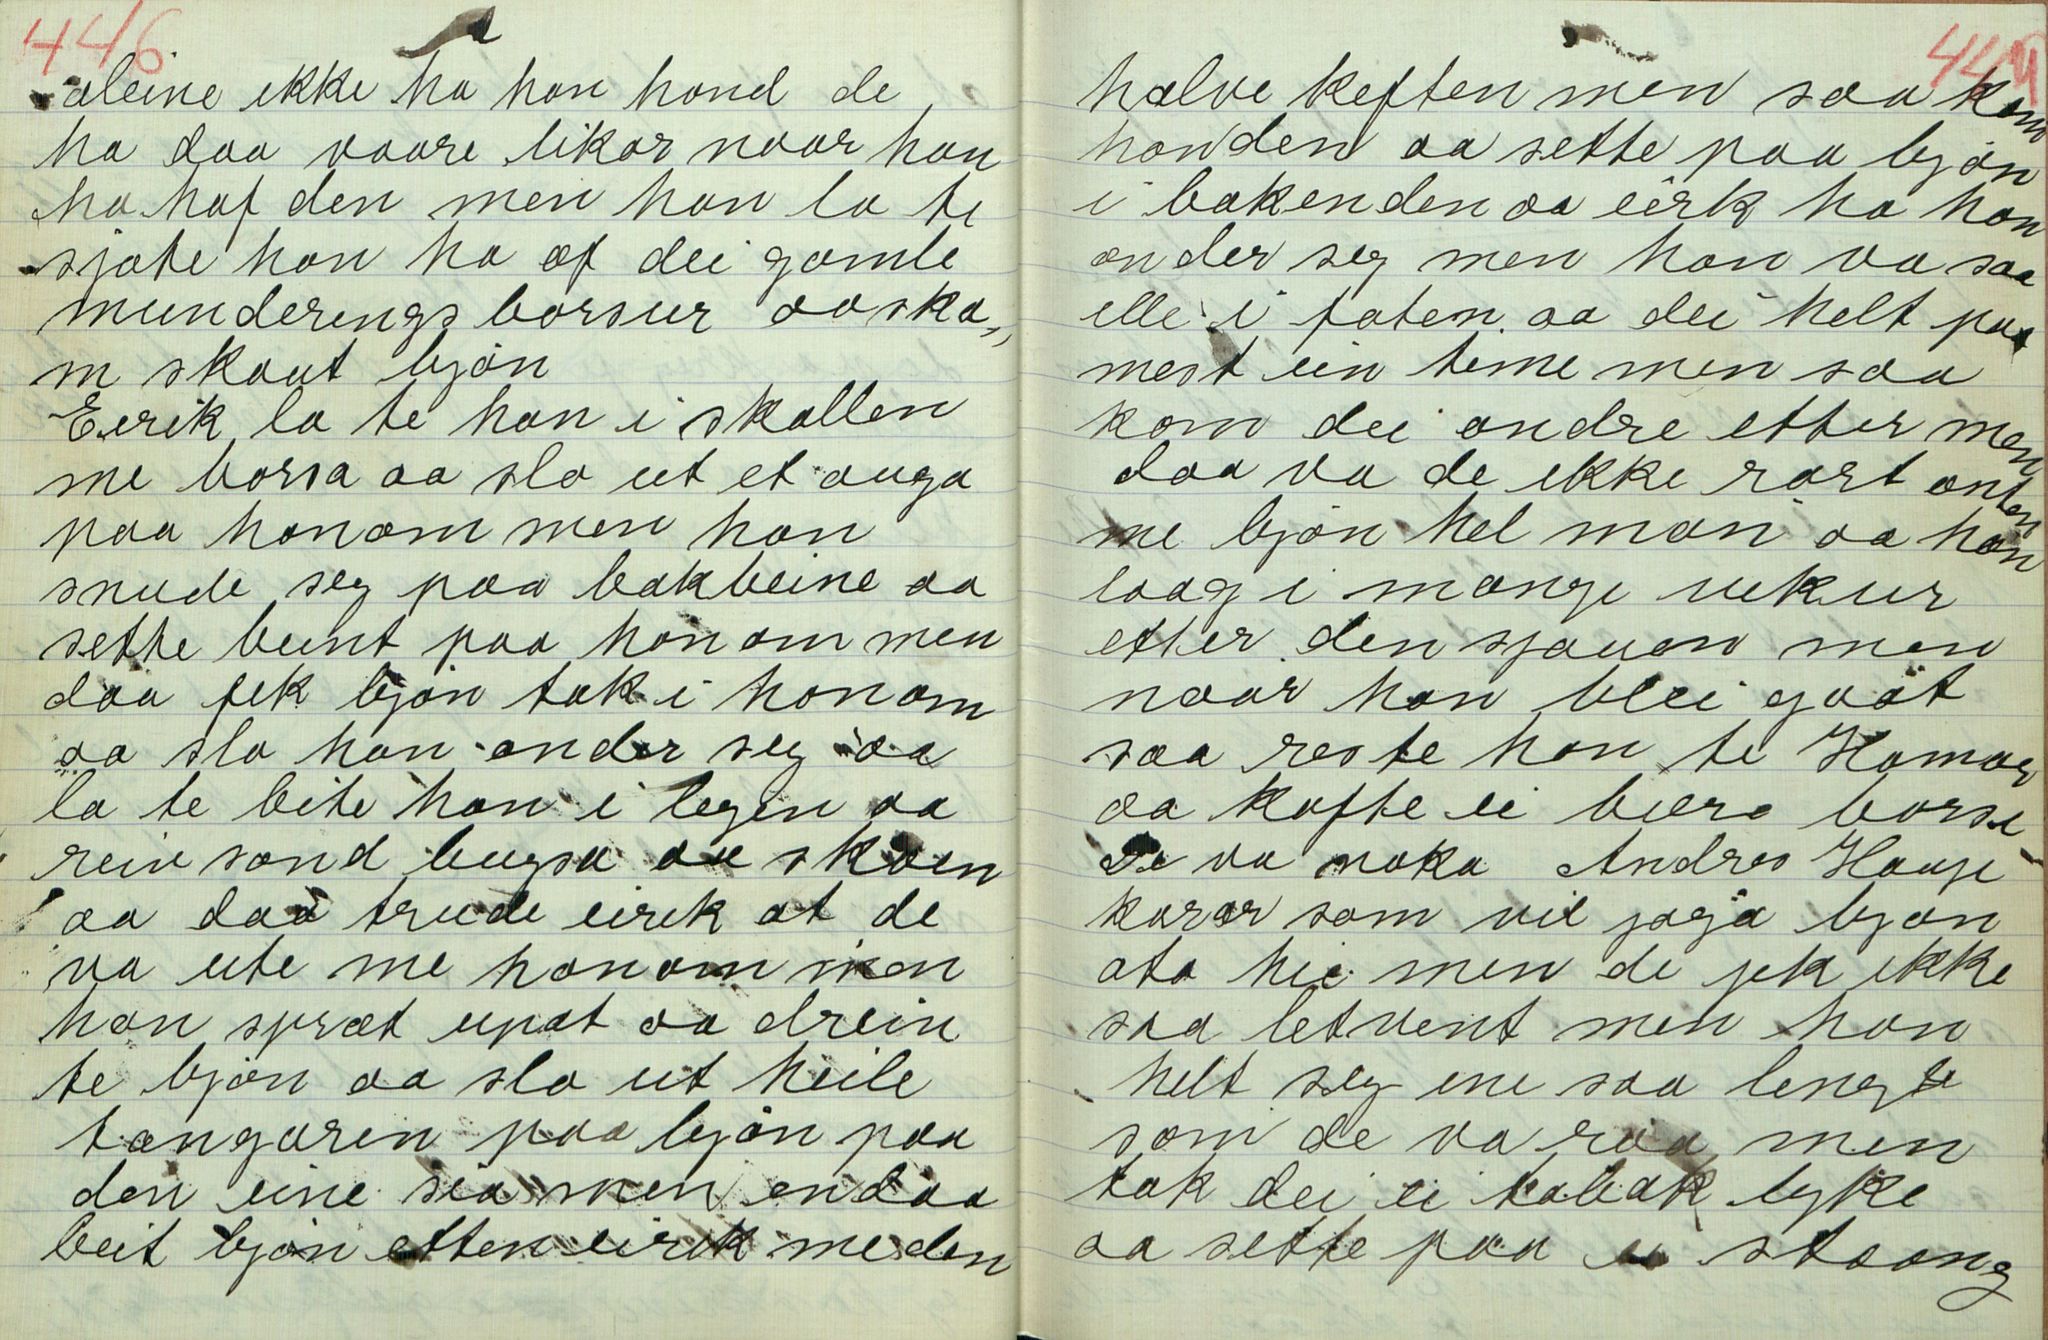 446
aleine ikke ha han hond de
ha daa vaare likar naar han
ha haf den men han la te
sjøte han ha af dei gamle
munderings børsur aa ska,,
m skaut bjøn
Eerik la te han i skallen
me børsa aa slo ut et auga
paa honom men han
snude seg paa bakbeine aa
sette bunt paa honom men
daa fek bjøn tak i honom
aa slo han onder seg aa
la te bite han i legen aa
reiv sond bugsa aa skoen
aa daa trude eirik at de
va ute me honom men
han spræt upat aa drein
te bjøn aa slo ut heile
tangaren paa bjøn paa
den eine sia men endaa
beit bjøn etten eirik me den
447
halve keften men saa kom
honden aa sette paa bjøn
i bakenden aa eirk ha han
onder seg men han va saa
elle i foten aa dei helt paa
mest ein time men saa
kom dei andre etter men
daa va de ikke rart anten
me bjøn hel man aa han
laag i mange uekur
etter den sjauen men
naar han blei goat
saa reste han te Hamar
aa køfte ei bære børse
De va noka Andres Hauge
karar som vil jaga bjøn
ota hie men de jek ikke
saa letvent men han
helt seg ine saa lenge
som de va raa men
tok dei ei tobak lyke
aa sette paa ei staang